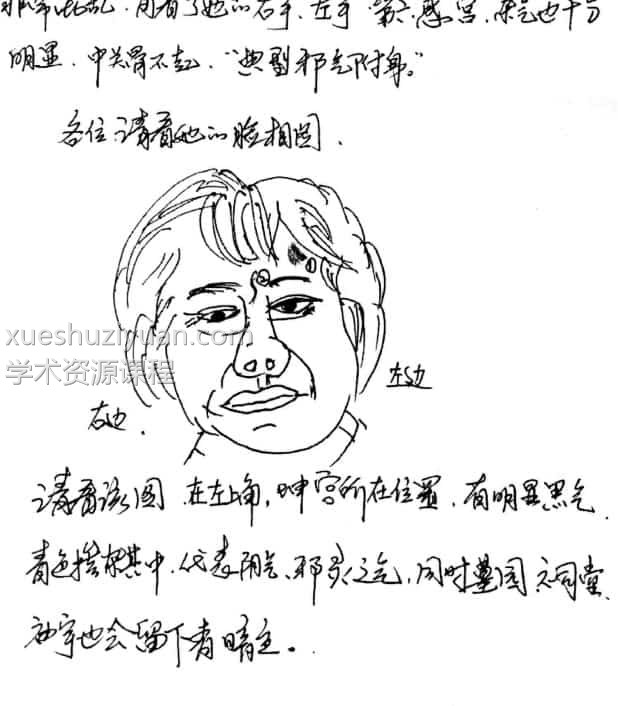 看了她的右手、左手 第六感宫、气也十分
明显．中关骨不起，“典型邪气附身。”
各位请看她的脸相图．
xueshuziyuan.com
学术资源课程
左边
右边．
请看该图．在左上角，坤宫所在位置，有明显黑气．
青色掺杂其中，代表阴气、邪灵之气，同时墓园 祠堂
也会留下青暗色。